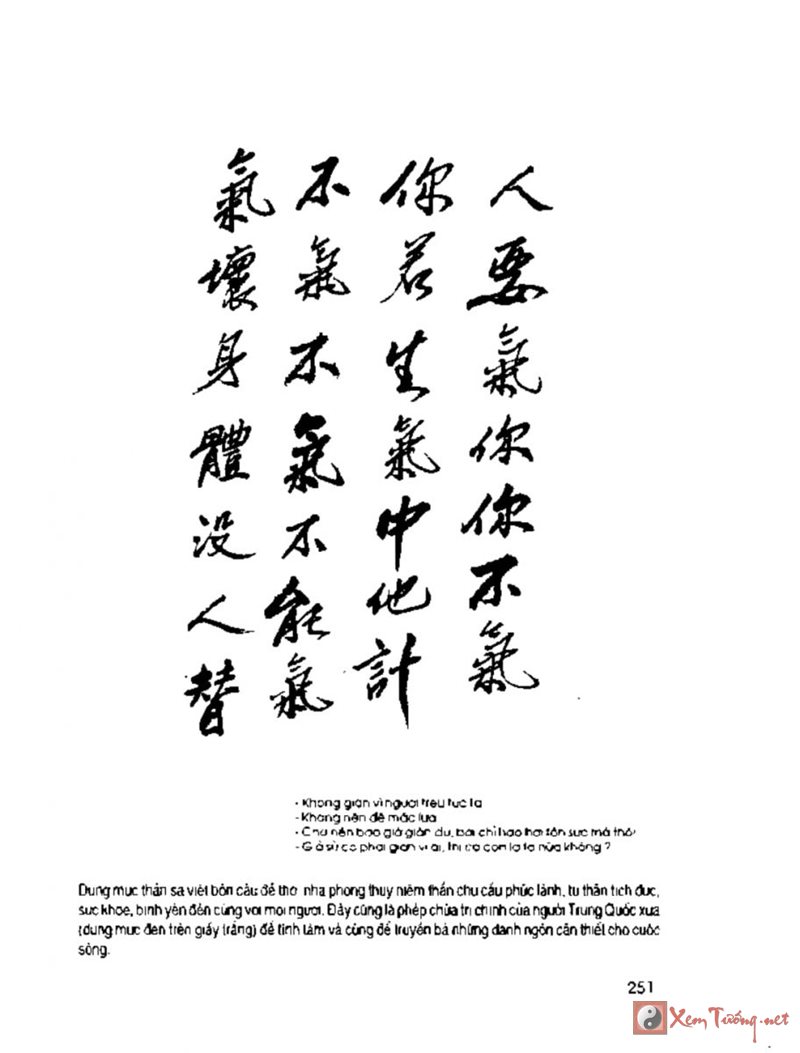 人要氣你你不氣
你若生氣中他計
不氣不氣不能氣
氣壞身體没人替
- Không giận vì người trêu tức ta
- Không nên để mắc lừa
- Chớ nên bao giờ giận dữ, bởi chỉ hao hơi tổn sức mà thôi
- Giả sử có phải giận vì ai, thì có còn là ta nữa không ?
Dùng mực thần sa viết bốn câu để thờ, nhà phong thủy niệm thần chú cầu phúc lành, tu thân tích đức,
sức khỏe, bình yên đến cùng với mọi người. Đây cũng là phép chữa trị chính của người Trung Quốc xưa
(dùng mực đen trên giấy trắng) để tịnh tâm và cũng để truyền bá những danh ngôn cần thiết cho cuộc
sống.
251
XemTướng.net